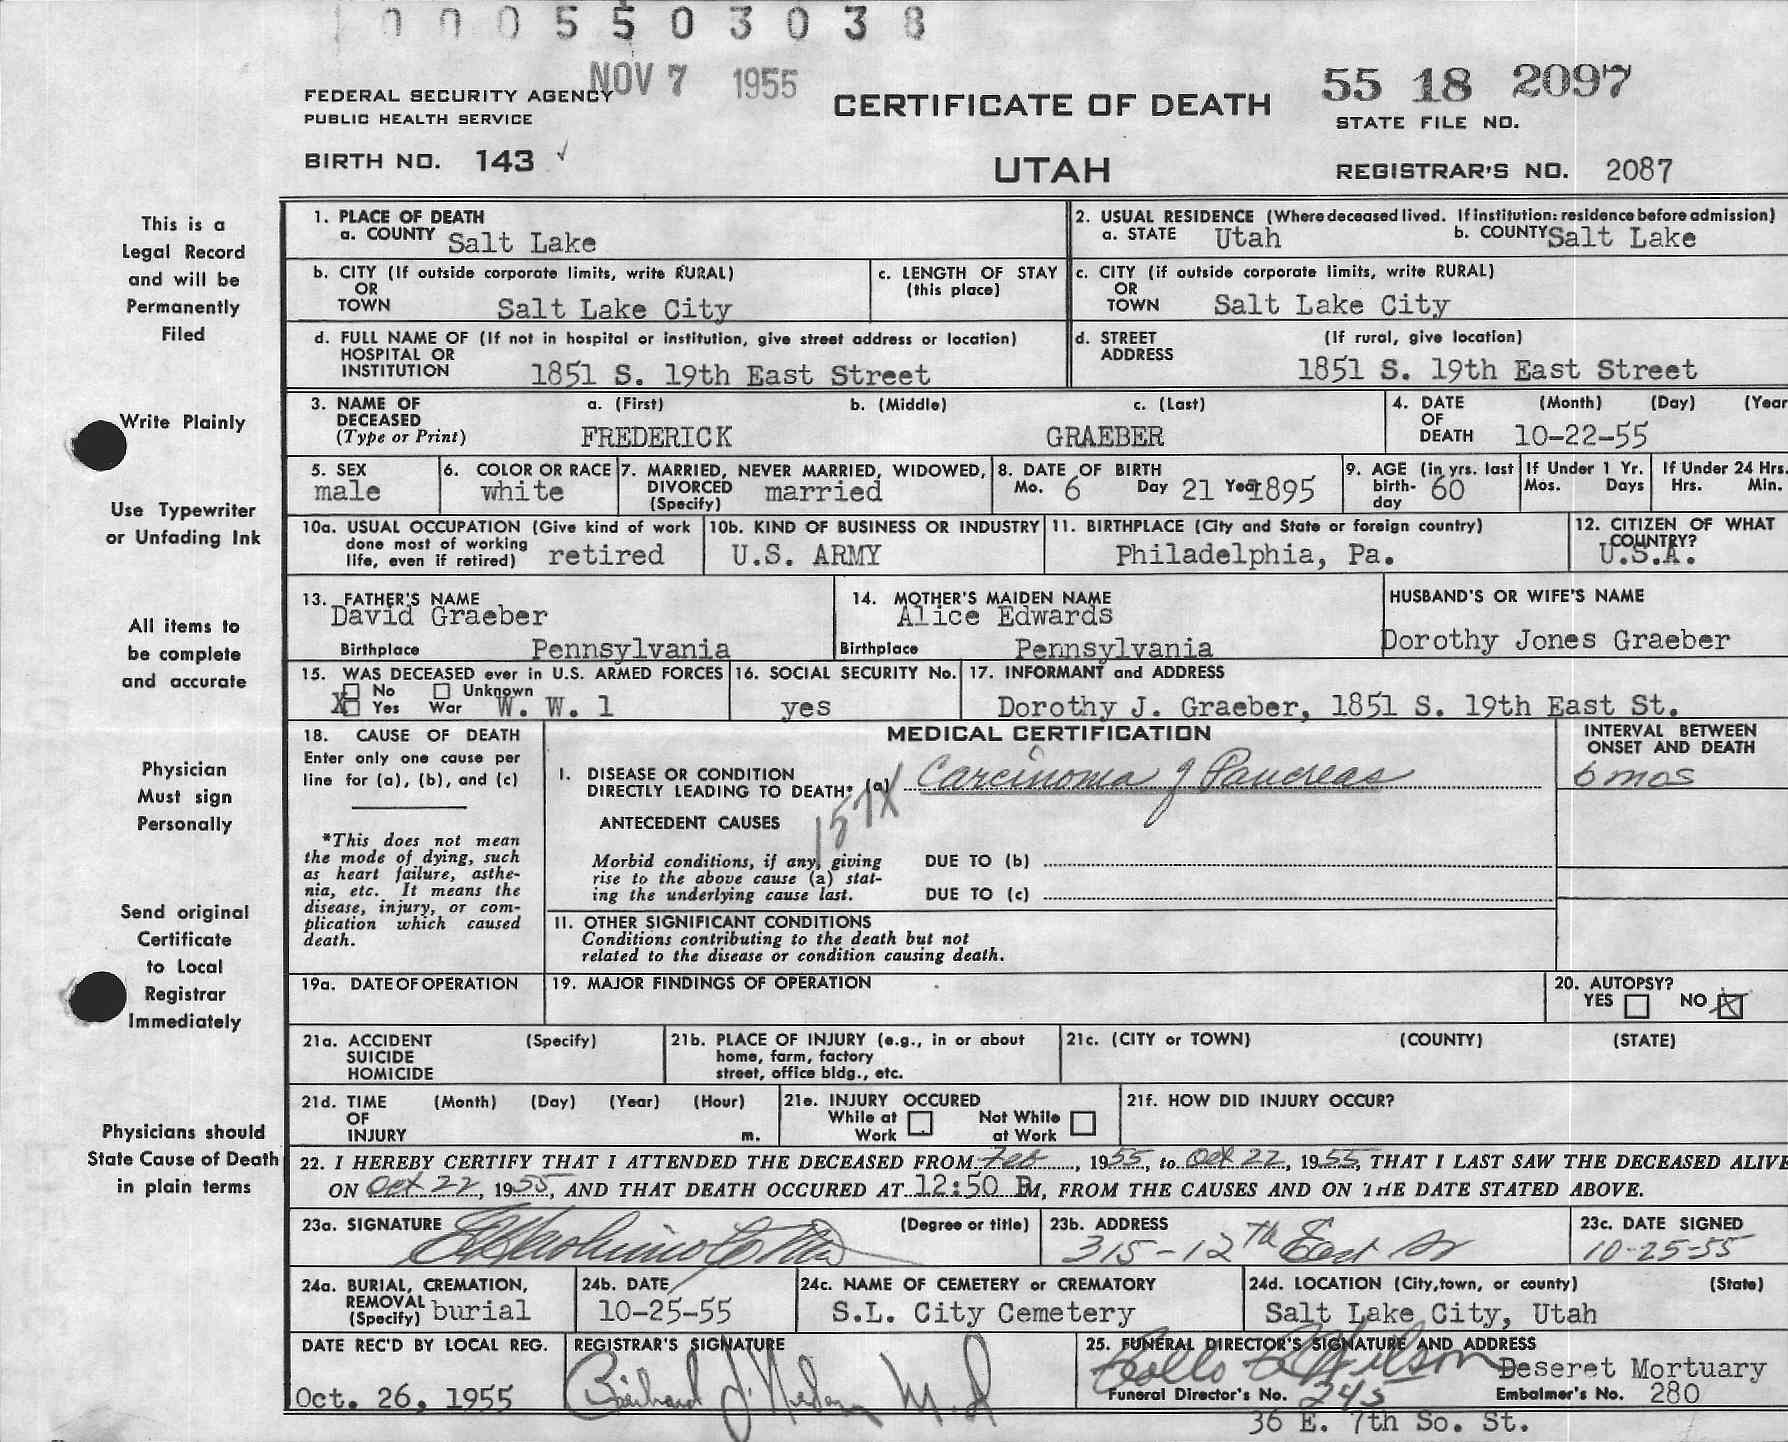 1 0 0 0 5 5 0 3 0 3 8
NOV 7 1955
55 18 2097
FEDERAL SECURITY AGENCY
PUBLIC HEALTH SERVICE
CERTIFICATE OF DEATH
STATE FILE NO.
BIRTH NO. 143 ✓
UTAH
REGISTRAR'S NO. 2087
This is a
Legal Record
and will be
Permanently
Filed
Write Plainly
Use Typewriter
or Unfading Ink
All items to
be complete
and accurate
Physician
Must sign
Personally
Send original
Certificate
to Local
Registrar
Immediately
Physicians should
State Cause of Death
in plain terms
1. PLACE OF DEATH
a. COUNTY Salt Lake
2. USUAL RESIDENCE (Where deceased lived. If institution: residence before admission)
a. STATE Utah b. COUNTY Salt Lake
b. CITY (If outside corporate limits, write RURAL)
OR
TOWN Salt Lake City
c. LENGTH OF STAY
(this place)
c. CITY (if outside corporate limits, write RURAL)
OR
TOWN Salt Lake City
d. FULL NAME OF (If not in hospital or institution, give street address or location)
HOSPITAL OR
INSTITUTION 1851 S. 19th East Street
d. STREET (If rural, give location)
ADDRESS
1851 S. 19th East Street
3. NAME OF a. (First) b. (Middle) c. (Last)
DECEASED
(Type or Print) FREDERICK GRAEBER
4. DATE (Month) (Day) (Year
OF
DEATH 10-22-55
5. SEX
male
6. COLOR OR RACE
white
7. MARRIED, NEVER MARRIED, WIDOWED,
DIVORCED married
(Specify)
8. DATE OF BIRTH
Mo. 6 Day 21 Year 1895
9. AGE (in yrs. last
birth- 60
day
If Under 1 Yr.
Mos. Days
If Under 24 Hrs.
Hrs. Min.
10a. USUAL OCCUPATION (Give kind of work
done most of working
life, even if retired) retired
10b. KIND OF BUSINESS OR INDUSTRY
U.S. ARMY
11. BIRTHPLACE (City and State or foreign country)
Philadelphia, Pa.
12. CITIZEN OF WHAT
COUNTRY?
U.S.A.
13. FATHER'S NAME
David Graeber
Birthplace Pennsylvania
14. MOTHER'S MAIDEN NAME
Alice Edwards
Birthplace Pennsylvania
HUSBAND'S OR WIFE'S NAME
Dorothy Jones Graeber
15. WAS DECEASED ever in U.S. ARMED FORCES
No Unknown
X Yes War W. W. 1
16. SOCIAL SECURITY No.
yes
17. INFORMANT and ADDRESS
Dorothy J. Graeber, 1851 S. 19th East St.
18. CAUSE OF DEATH
Enter only one cause per
line for (a), (b), and (c)
*This does not mean
the mode of dying, such
as heart failure, asthe-
nia, etc. It means the
disease, injury, or com-
plication which caused
death.
MEDICAL CERTIFICATION
INTERVAL BETWEEN
ONSET AND DEATH
I. DISEASE OR CONDITION
DIRECTLY LEADING TO DEATH* (a) Carcinoma of Pancreas 6 mos
157X
ANTECEDENT CAUSES
Morbid conditions, if any, giving
rise to the above cause (a) stat-
ing the underlying cause last.
DUE TO (b)
DUE TO (c)
II. OTHER SIGNIFICANT CONDITIONS
Conditions contributing to the death but not
related to the disease or condition causing death.
19a. DATE OF OPERATION
19. MAJOR FINDINGS OF OPERATION
20. AUTOPSY?
YES NO X
21a. ACCIDENT (Specify)
SUICIDE
HOMICIDE
21b. PLACE OF INJURY (e.g., in or about
home, farm, factory
street, office bldg., etc.
21c. (CITY or TOWN) (COUNTY) (STATE)
21d. TIME (Month) (Day) (Year) (Hour)
OF
INJURY m.
21e. INJURY OCCURED
While at Not While
Work at Work
21f. HOW DID INJURY OCCUR?
22. I HEREBY CERTIFY THAT I ATTENDED THE DECEASED FROM Feb, 1955, to Oct 22, 1955, THAT I LAST SAW THE DECEASED ALIVE
ON Oct 22, 1955, AND THAT DEATH OCCURED AT 12:50 PM, FROM THE CAUSES AND ON THE DATE STATED ABOVE.
23a. SIGNATURE (Degree or title)
23b. ADDRESS
315-12th East
23c. DATE SIGNED
10-25-55
24a. BURIAL, CREMATION,
REMOVAL
(Specify) burial
24b. DATE
10-25-55
24c. NAME OF CEMETERY or CREMATORY
S.L. City Cemetery
24d. LOCATION (City, town, or county) (State)
Salt Lake City, Utah
DATE REC'D BY LOCAL REG.
Oct. 26, 1955
REGISTRAR'S SIGNATURE
M.D
25. FUNERAL DIRECTOR'S SIGNATURE AND ADDRESS
Wilson Deseret Mortuary
Funeral Director's No. 245 Embalmer's No. 280
36 E. 7th So. St.